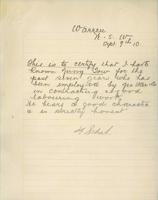 Warren
N. S. W.
Sept 9th 10.
This is to certify that I have
known Jimmy Gow for the
past seven years who has
been employed by me
in contracting and
labouring work
He bears a good character
& is strictly honest